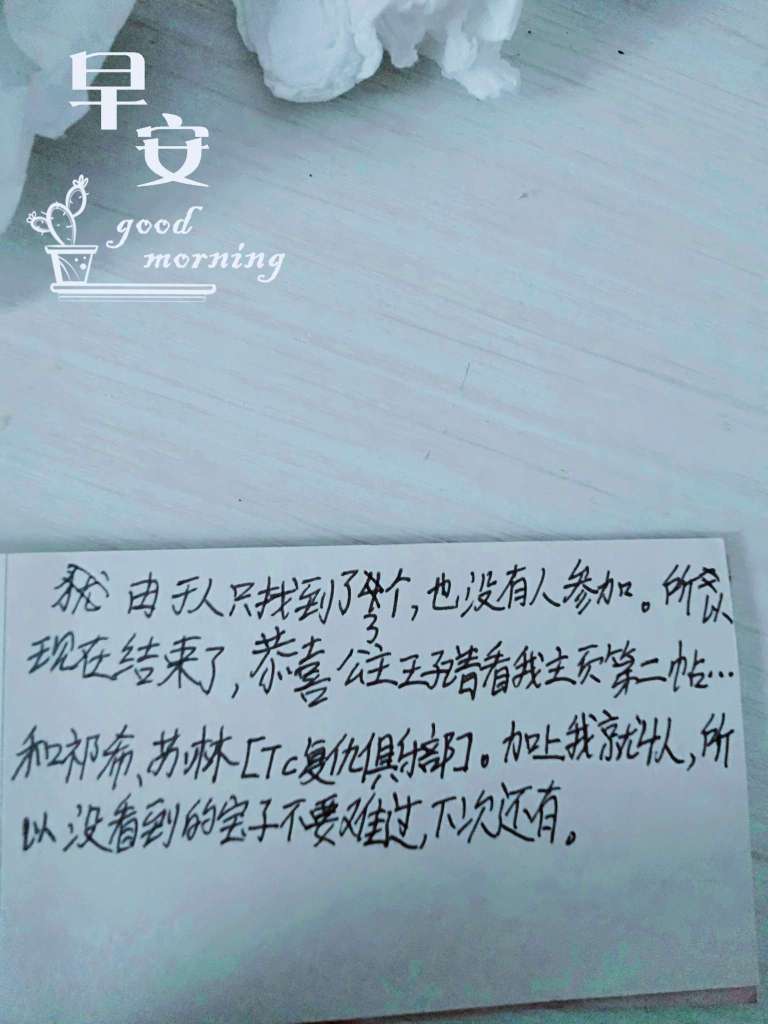 早安
good
morning
由于人只找到了3个,也没有人参加。所以
现在结束了,恭喜公主王子请看我主页第二帖…
和祁希、苏琳[Tc复仇俱乐部]。加上我就4人,所
以没看到的宝子不要难过,下次还有。